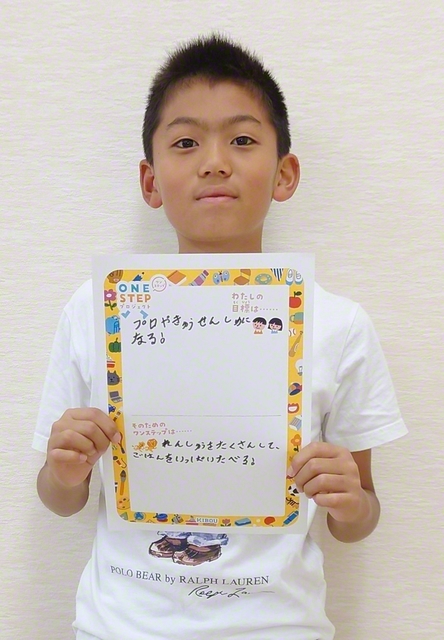 ONE
STEP
プロジェクト
わたしの
目標は……
プロやきゅうせんしゅに
なる!
そのための
ワンステップは……
れんしゅうをたくさんして、
ごはんをいっぱいたべる!
KIBOU
POLO BEAR by RALPH LAUREN